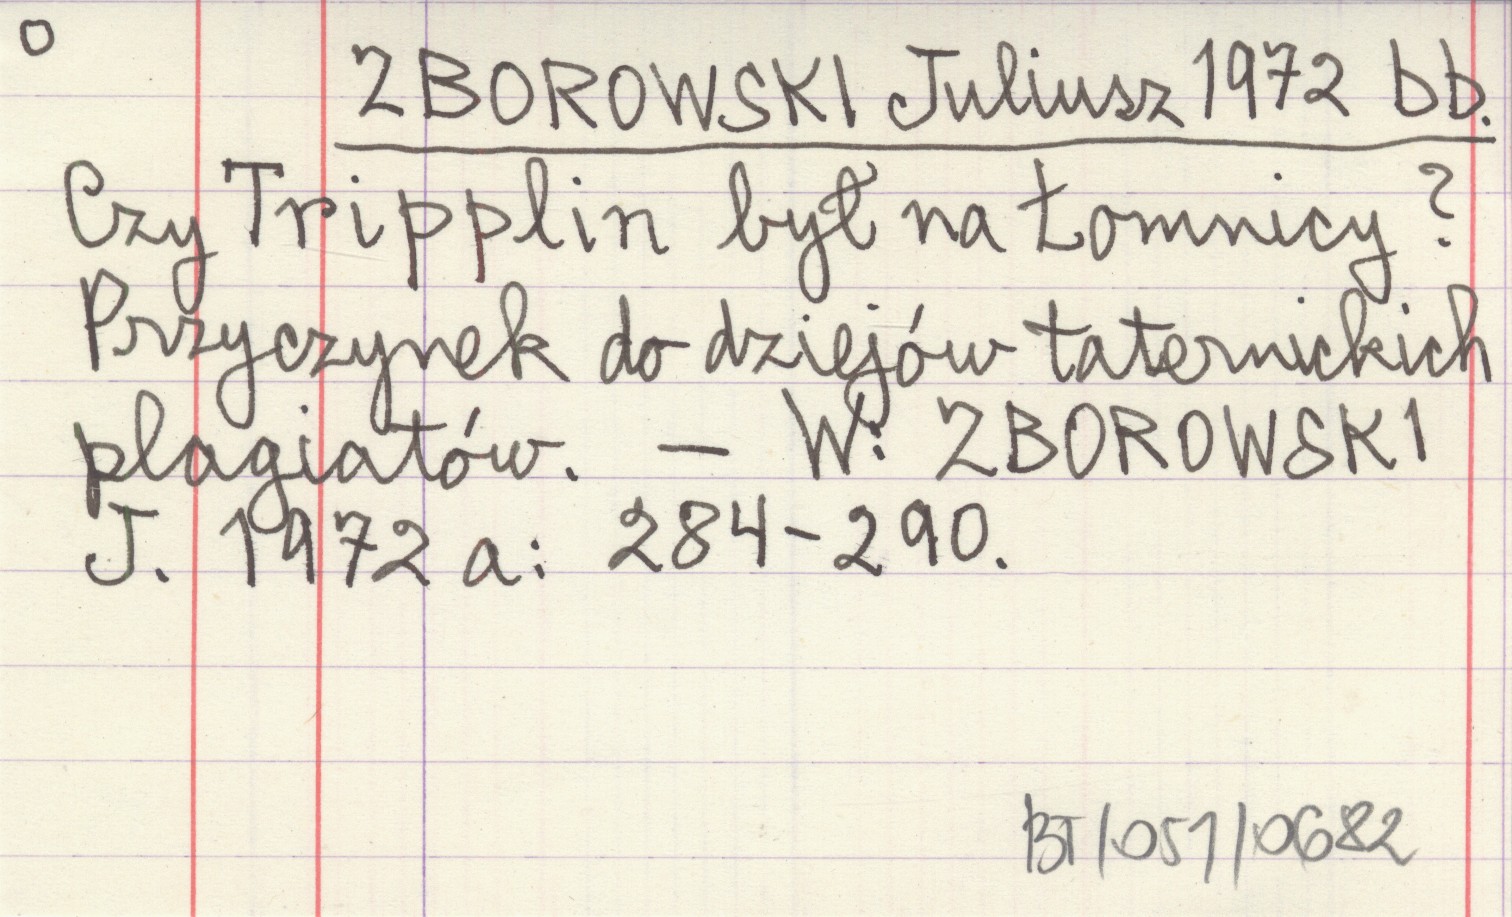 O
ZBOROWSKI Juliusz 1972 bb.
Czy Tripplin był na Łomnicy?
Przyczynek do dziejów taternickich
plagiatów. — W: ZBOROWSKI
J. 1972 a: 284-290.
BT/051/0682